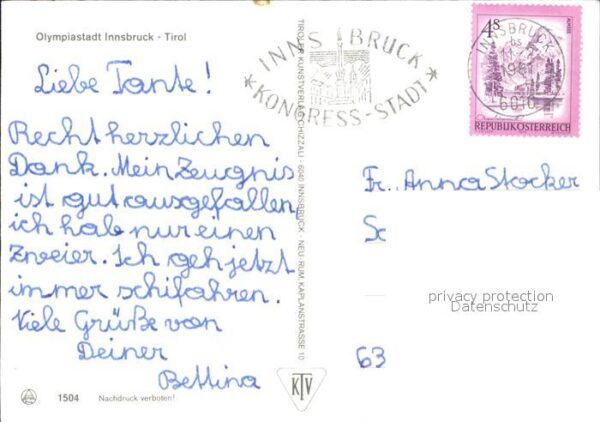 Olympiastadt Innsbruck - Tirol
Liebe Tante!
Recht herzlichen
Dank. Mein Zeugnis
ist gut ausgefallen,
ich hab nur einen
Zweier. Ich geh jetzt
immer schifahren.
Viele Grüße von
Deiner
Bettina
1504 Nachdruck verboten!
TIROLER KUNSTVERLAG CHIZZALI · 6040 INNSBRUCK - NEU-RUM, KAPLANSTRASSE 10
KTV
INNSBRUCK
*KONGRESS-STADT*
INNSBRUCK
1981
6010
4S
REPUBLIK ÖSTERREICH
Fr. Anna Stocker
Sc
privacy protection
Datenschutz
63